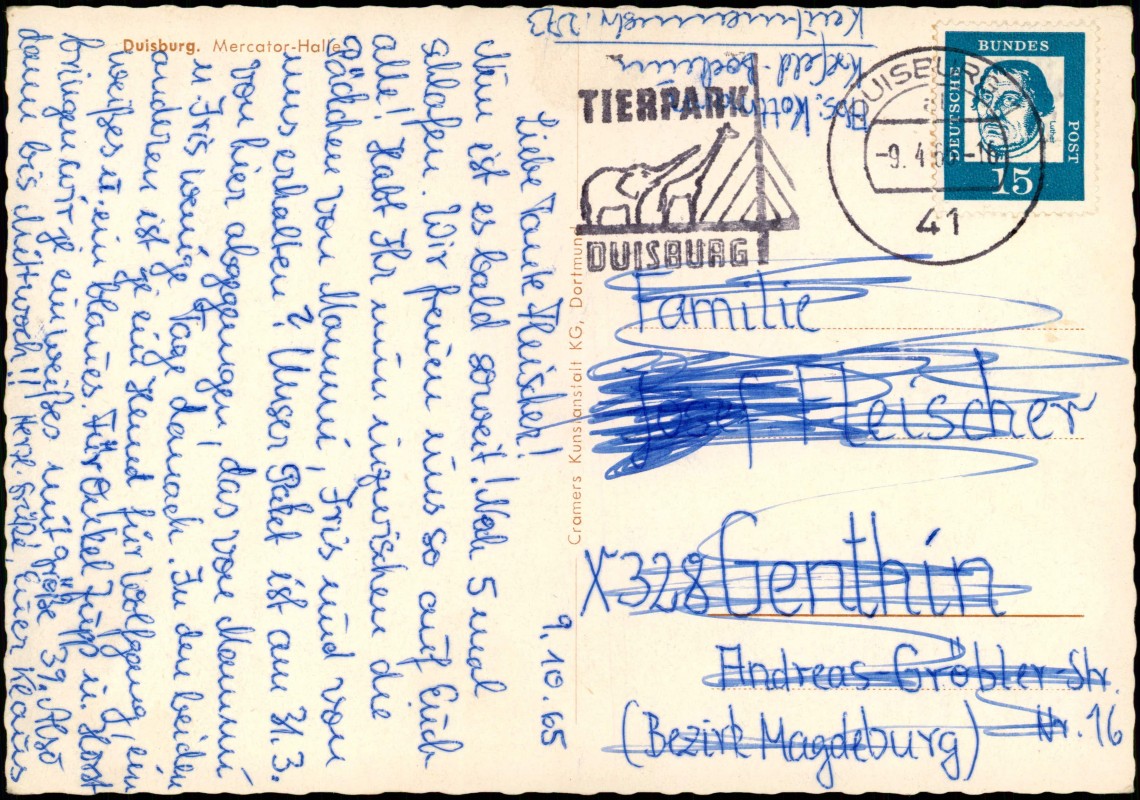 Duisburg. Mercator-Halle
9. 10. 65
Liebe Tante Fleischer!
Nun ist es bald soweit! Noch 5 mal
schlafen. Wir freuen uns so auf Euch
alle! Habt Ihr nun inzwischen die
Päckchen von Mammi, Iris und von
uns erhalten? Unser Paket ist am 31. 3.
von hier abgegangen! das von Mammi
u. Iris wenige Tage danach. In den beiden
anderen ist je ein Hemd für Wolfgang, ein
weißes u. ein blaues. Für Onkel Jupp u. Horst
bringen wir je ein weißes mit größe 39. Also
dann bis Mittwoch!! Herzl. Grüße, Euer Klaus
Cramers Kunstanstalt KG, Dortmund
Abs. Kott
Krefeld-Bockum
273
TIERPARK
DUISBURG
DUISBURG
-9. 4.
41
DEUTSCHE
BUNDES
POST
Luther
15
Familie
Josef Fleischer
X328 Genthin
Andreas-Gröbler-Str.
Nr. 16
(Bezirk Magdeburg)